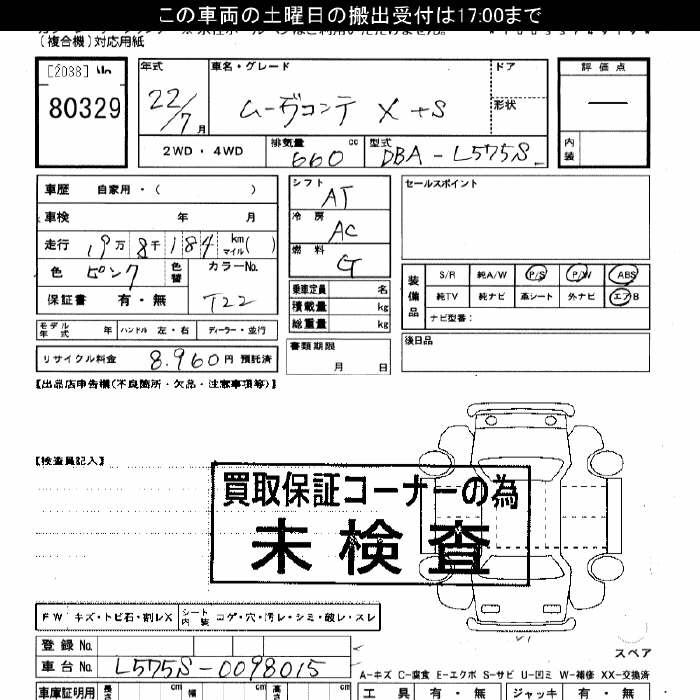 この車両の土曜日の搬出受付は17:00まで
(複合機)対応用紙
[2033]
80329
年式 車名・グレード ドア 評価点
22/7月 ムーヴコンテ X+S 形状
2WD・4WD 排気量 660 cc 型式 DBA-L575S 内装
車歴 自家用・( )
シフト AT
セールスポイント
車検 年 月
冷房 AC
走行 19万8千184 km マイル( )
燃料 G
色 ピンク 色替 カラーNo. T22
装備品 S/R 純A/W P/S P/W ABS
保証書 有・無
乗車定員 名
純TV 純ナビ 革シート 外ナビ エアB
積載量 kg
ナビ型番:
モデル年式 年 ハンドル 左・右 ディーラー・並行
総重量 kg
リサイクル料金 8.960円 預託済
書類期限 月 日
後日品
【出品店申告欄(不良箇所・欠品・注意事項等)】
【検査員記入】
買取保証コーナーの為
未検査
FW キズ・トビ石・割レX シート内装 コゲ・穴・汚レ・シミ・破レ・スレ
登録No.
スペア
車台No. L575S-0098015
A-キズ C-腐食 E-エクボ S-サビ U-凹ミ W-補修 XX-交換済
車庫証明用 長さ cm 幅 cm 高さ cm 工具 有・無 ジャッキ 有・無